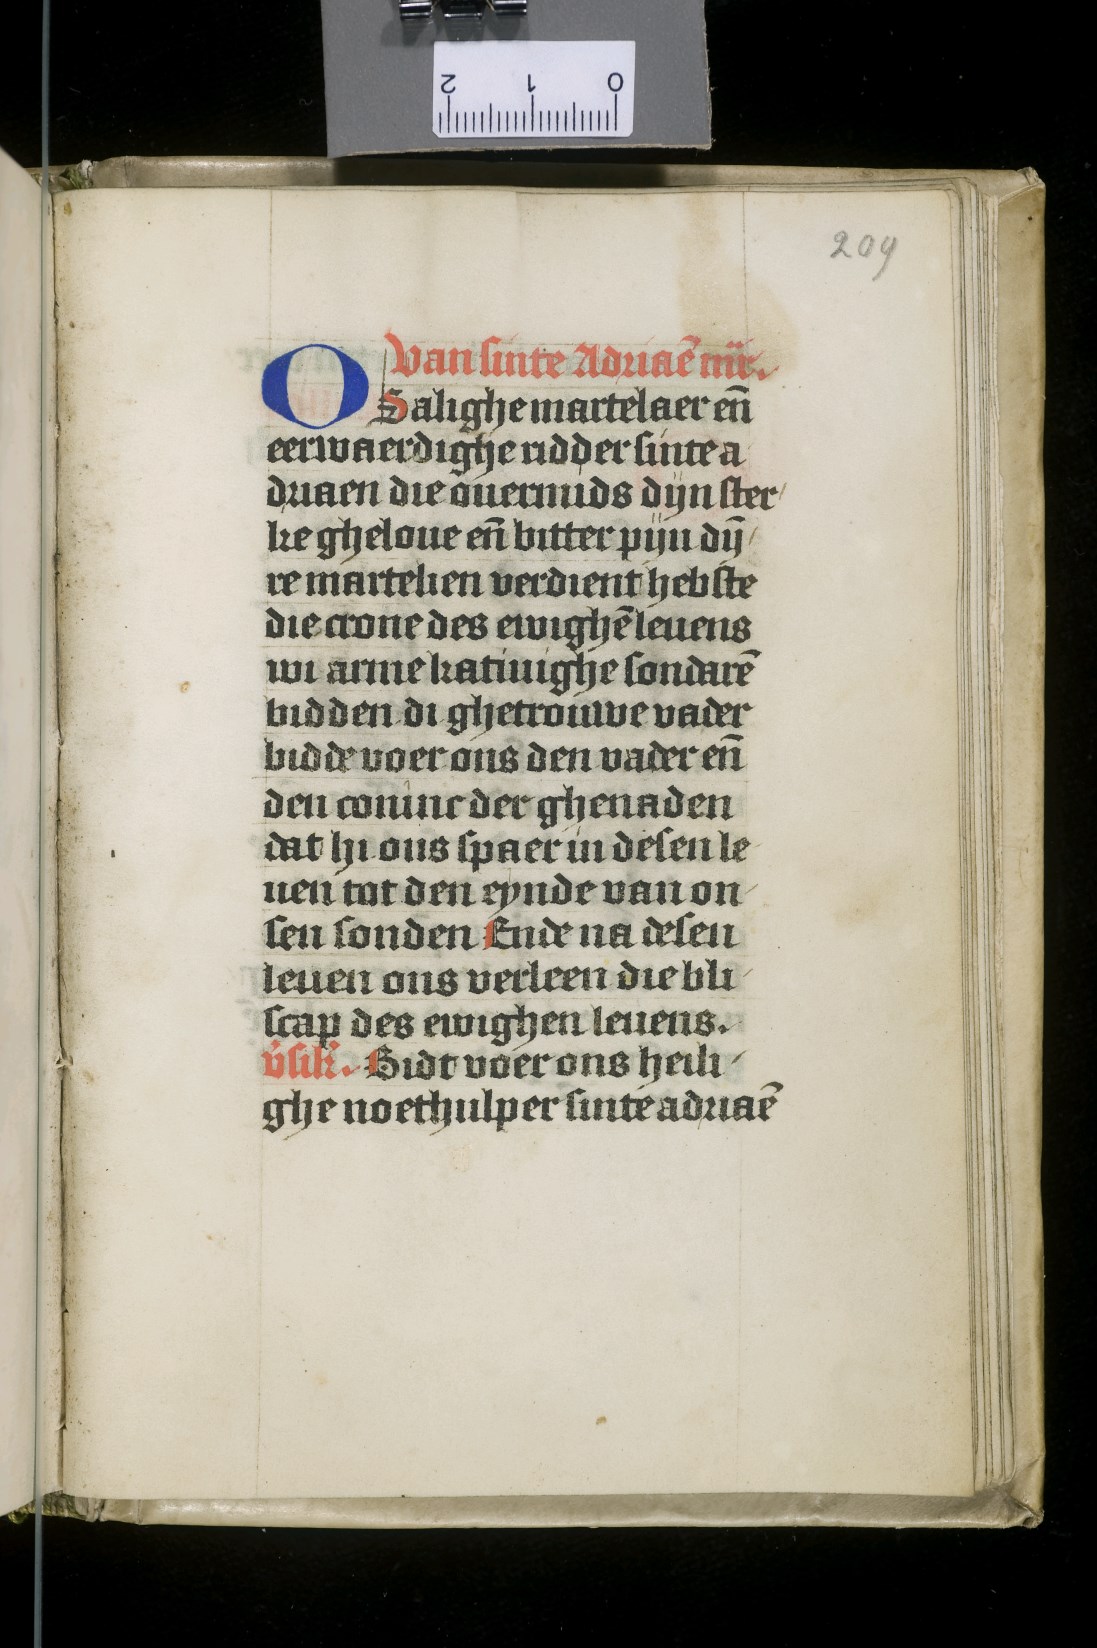 2 1 0
209
Van sinte Adriaē mr̄.
O Salighe martelaer en̄
eerwaerdighe ridder sinte a
driaen die ouermids dijn ster
ke gheloue en̄ bitter pijn dȳ
re martelien verdient hebste
die crone des ewighē leuens
wi arme katiuighe sondarē
bidden di ghetrouwe vader
bidde voer ons den vader en̄
den coninc der ghenaden
dat hi ons spaer in desen le
uen tot den eynde van on
sen sonden Ende na desen
leuen ons verleen die bli
scap des ewighen leuens.
v̓sik̓. Bidt voer ons heili
ghe noethulper sinte adriaē